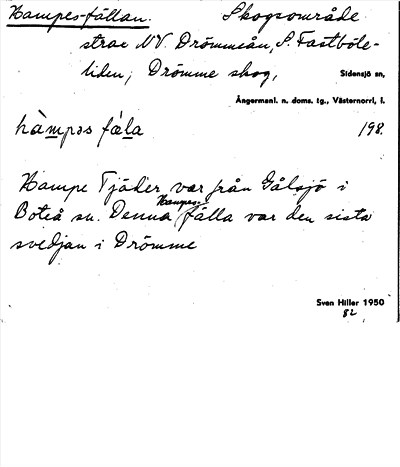 Hampes-fällan. Skogsområde
strax NV. Drömmeån, S. Fastböle-
liden, Drömme skog, Sidensjö sn,
Ångermanl. n. doms. tg., Västernorrl. l.
hàmpəs fäla 198.
Hampe Tjäder var från Gålsjö i
Boteå sn. Denna Hampes-fälla var den sista
svedjan i Drömme
Sven Hiller 1950
82